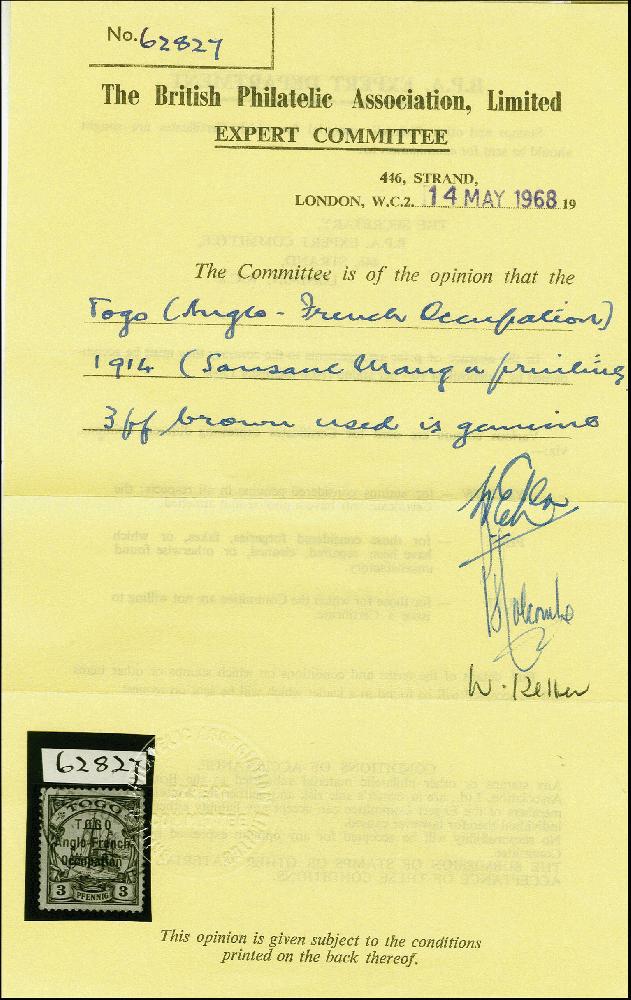 No. 62827
The British Philatelic Association, Limited
EXPERT COMMITTEE
446, STRAND,
LONDON, W.C.2. 14 MAY 1968 19
The Committee is of the opinion that the
Togo (Anglo-French Occupation)
1914 (Sansane Mangu printing
3pf brown used is genuine
W. Keller
62827
TOGO
TOGO
Anglo-French
Occupation
3 PFENNIG 3
This opinion is given subject to the conditions
printed on the back thereof.